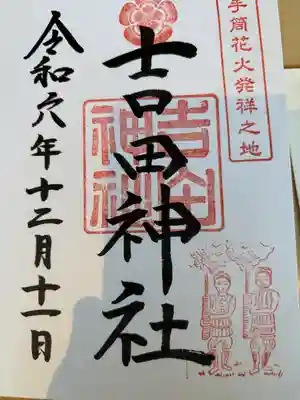 手筒花火発祥之地
吉田神社
吉田
神社
令和六年十二月十一日